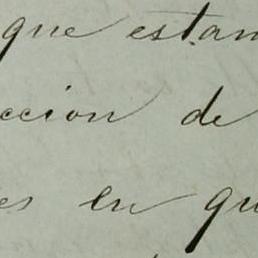 que estan
ccion de
es en qu